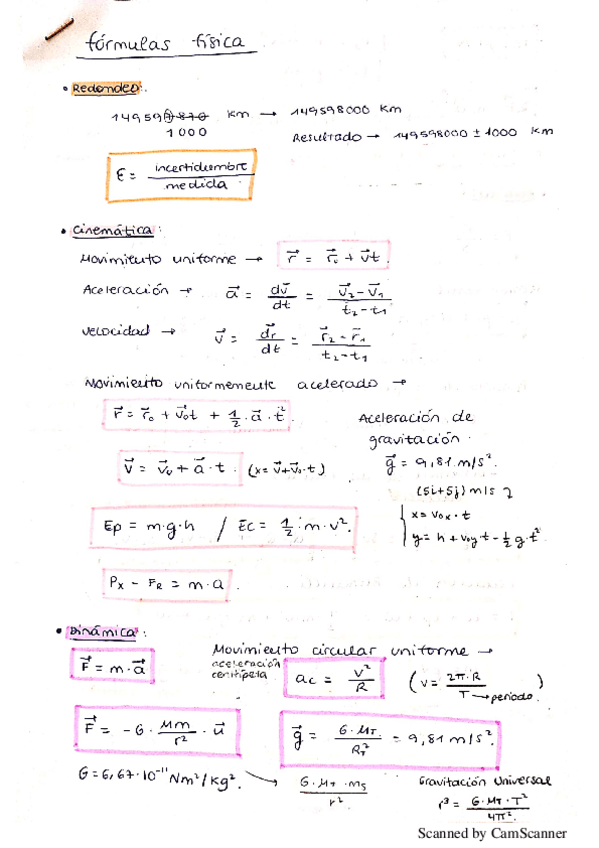 fórmulas física
• Redondeo:.
149597870 km → 149598000 km
1000
Resultado → 149598000 ± 1000 km
ε = incertidumbre / medida
• Cinemática:
Movimiento uniforme → r⃗ = r⃗₀ + v⃗t.
Aceleración → a⃗ = dv⃗/dt = (v⃗₂ - v⃗₁)/(t₂ - t₁)
Velocidad → v⃗ = dr⃗/dt = (r⃗₂ - r⃗₁)/(t₂ - t₁)
Movimiento uniformemente acelerado →
r⃗ = r⃗₀ + v⃗₀t + 1/2 · a⃗ · t².
v⃗ = v⃗₀ + a⃗ · t. (x = v⃗ + v⃗₀ · t)
Ep = m·g·h / Ec = 1/2 · m · v².
Px - FR = m·a.
Aceleración de
gravitación.
g⃗ = 9,81 m/s².
(5i+5j) m/s
x = v₀x · t
y = h + v₀y t - 1/2 g·t²
• Dinámica:
F⃗ = m·a⃗
Movimiento circular uniforme →
aceleración
centrípeta
ac = v²/R
(v = 2π·R/T → periodo.)
F⃗ = -G · Mm/r² · u⃗
g⃗ = G·MT/RT² = 9,81 m/s².
G = 6,67·10⁻¹¹ Nm²/kg².
G·MT·ms/r².
Gravitación Universal
r³ = G·MT·T²/4π².
Scanned by CamScanner